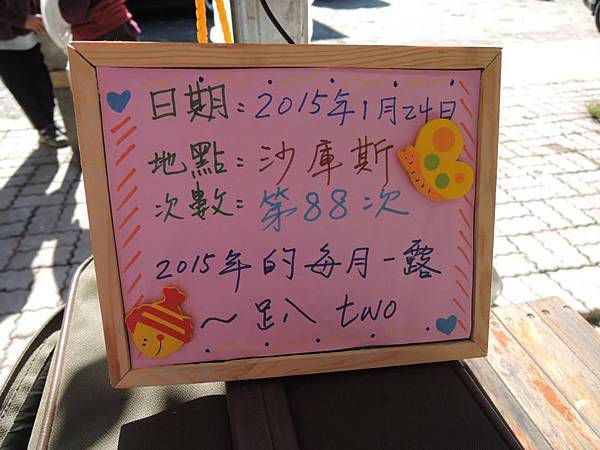 日期：2015年1月24日
地點：沙庫斯
次數：第88次
2015年的每月一露
～趴 two